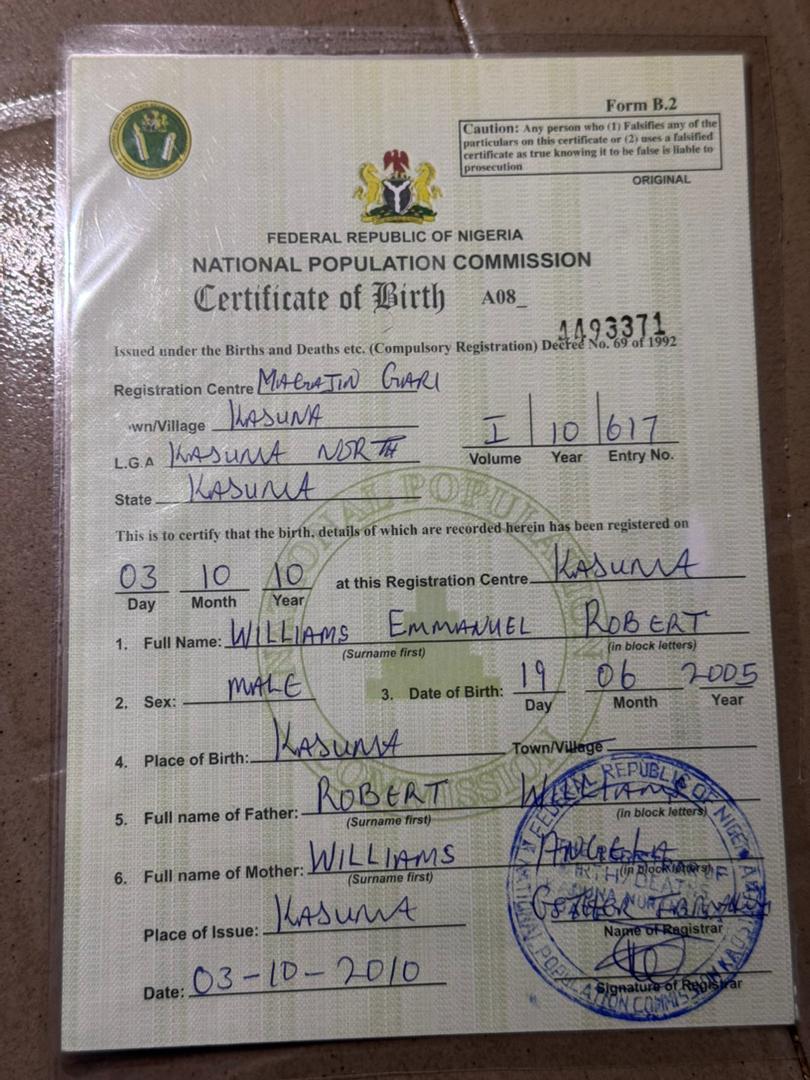 Form B.2
Caution: Any person who (1) Falsifies any of the
particulars on this certificate or (2) uses a falsified
certificate as true knowing it to be false is liable to
prosecution
ORIGINAL
FEDERAL REPUBLIC OF NIGERIA
NATIONAL POPULATION COMMISSION
Certificate of Birth A08_
4493371
Issued under the Births and Deaths etc. (Compulsory Registration) Decree No. 69 of 1992
Registration Centre MAGAJIN GARI
wn/Village KADUNA
L.G.A KADUNA NORTH
I 10 617
Volume Year Entry No.
State KADUNA
This is to certify that the birth, details of which are recorded herein has been registered on
03 10 10 at this Registration Centre KADUNA
Day Month Year
1. Full Name: WILLIAMS EMMANUEL ROBERT
(Surname first) (in block letters)
2. Sex: MALE 3. Date of Birth: 19 06 2005
Day Month Year
4. Place of Birth: KADUNA Town/Village
5. Full name of Father: ROBERT WILLIAMS
(Surname first) (in block letters)
6. Full name of Mother: WILLIAMS ANGELA
(Surname first) (in block letters)
Place of Issue: KADUNA
Name of Registrar
Date: 03-10-2010
Signature of Registrar
NATIONAL POPULATION COMMISSION